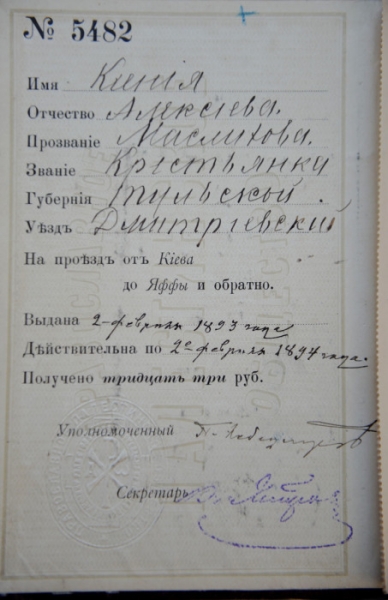 № 5482
Имя Ксенія
Отчество Алексіева.
Прозваніе Маслихова.
Званіе Крестьянка
Губернія Тульской.
Уѣздъ Дмитріевскій
На проѣздъ отъ Кіева
до Яффы и обратно.
Выдана 2 февраля 1893 года
Дѣйствительна по 2е февраля 1894 года.
Получено тридцать три руб.
Уполномоченный
Секретарь